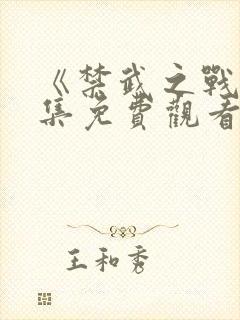 《禁武之戰
集免費觀看
王和秀